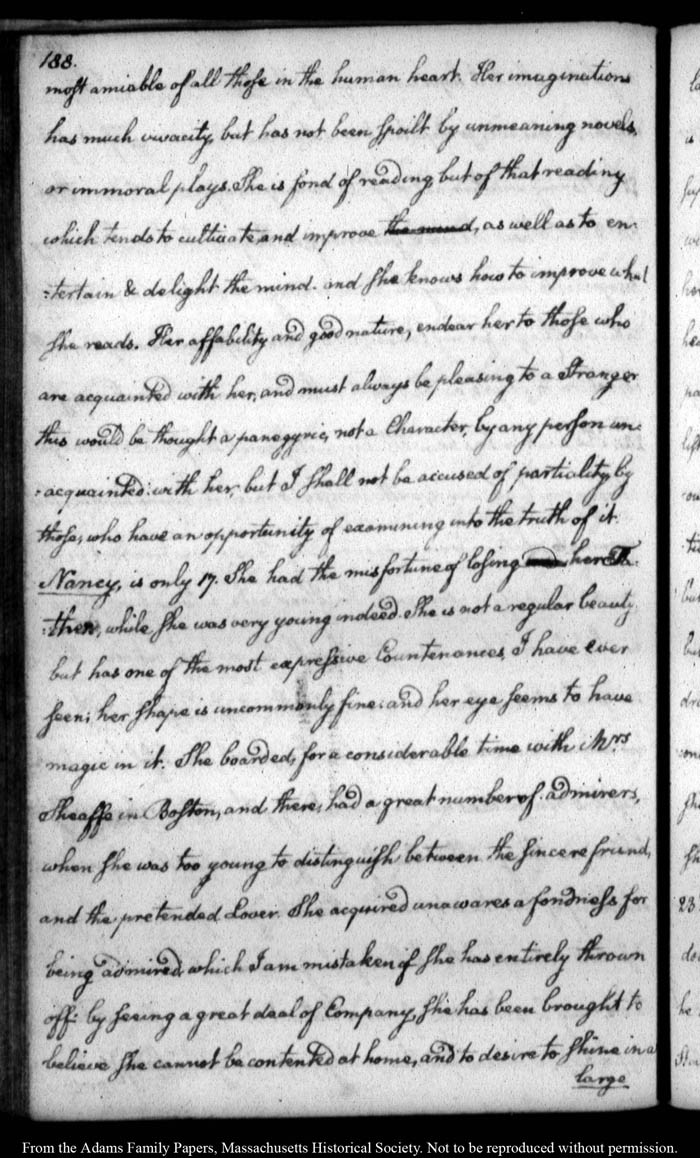 188.
most amiable of all those in the human heart. Her imagination
has much vivacity, but has not been spoilt by unmeaning novels,
or immoral plays. She is fond of reading but of that reading
which tends to cultivate and improve the mind, as well as to en-
-tertain & delight the mind. and she knows how to improve what
she reads. Her affability and good nature, endear her to those who
are acquainted with her, and must always be pleasing to a Stranger
this would be thought a panegyric, not a Character, by any person un-
-acquainted with her, but I shall not be accused of partiality, by
those, who have an opportunity of examining into the truth of it.
Nancy, is only 17. She had the misfortune of losing her Fa-
-ther, while she was very young indeed. She is not a regular beauty
but has one of the most expressive Countenances, I have ever
seen; her shape is uncommonly fine: and her eye seems to have
magic in it. She boarded, for a considerable time with Mrs
Sheaffe in Boston, and there, had a great number of admirers,
when she was too young to distinguish between the sincere friend,
and the pretended Lover. She acquired unawares a fondness for
being admired, which I am mistaken if she has entirely thrown
off: by seeing a great deal of Company, she has been brought to
believe she cannot be contented at home, and to desire to shine in a
large
From the Adams Family Papers, Massachusetts Historical Society. Not to be reproduced without permission.